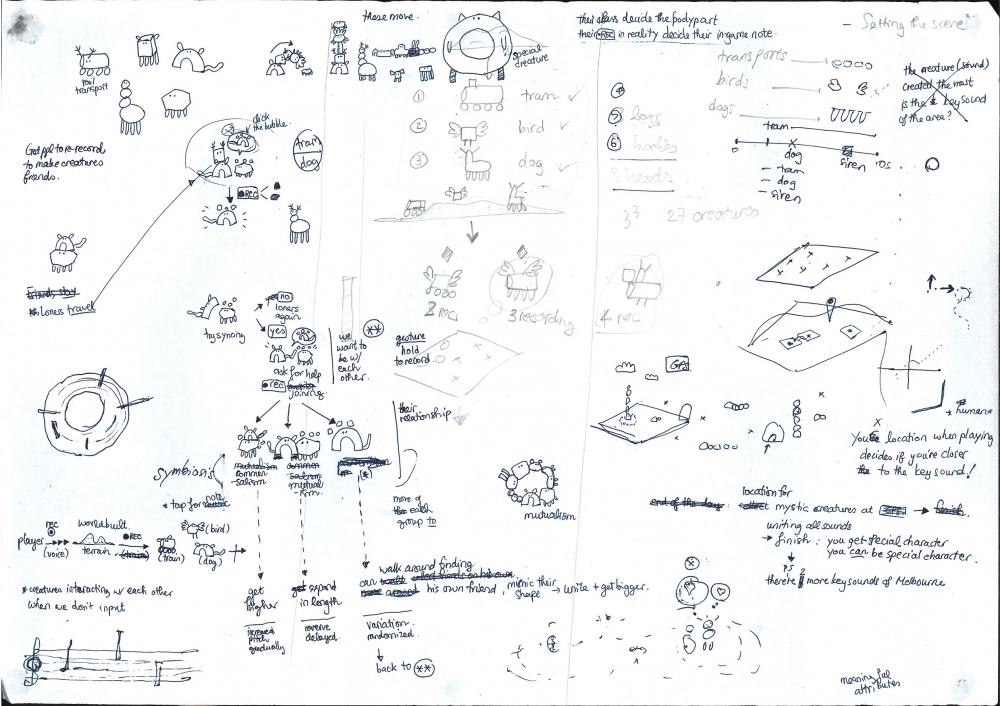 these move.
their class decide the body part
their REC in reality decide their in-game note.
- Setting the scene
rail
transport
special
creature
transports
birds
dogs
the creature (sound)
created the most
is the key sound
of the area?
① tram ✓
② bird ✓
③ dog ✓
④
⑤ legs
⑥ bodies
3 heads
3³ 27 creatures
tram
dog
siren
- tram
- dog
- siren
click
the bubble.
tram
dog
Get ppl to re-record
to make creatures
friends.
REC
Friends stay
Loners travel
2 rec
3 recording
4 rec
try syncing
no
loners
again
yes
ask for help
rec
joining.
we
want to
be w/
each
other.
**
gesture
hold
to record.
their
relationship
symbiosis
commen-
salism
mutual-
ism.
* tap for note
more of
the each
group to
mutualism
GPS
human
X
You're location when playing
decides if you're closer
to the key sound!
rec
player
(voice)
world built.
terrain
REC
(train)
(train)
(bird)
(dog)
* creatures interacting w/ each other
when we don't input
get
higher
increase
pitch
gradually
get expand
in length
reverse
delayed.
walk around finding
can
his own friend, mimic their
shape → unite + get bigger.
variation
randomized.
back to **
end of the day:
location for
collect mystic creatures at → finish.
uniting all sounds
→ finish: you get special character
you can be special character.
ps
there're more key sounds of Melbourne
meaningful
attributes